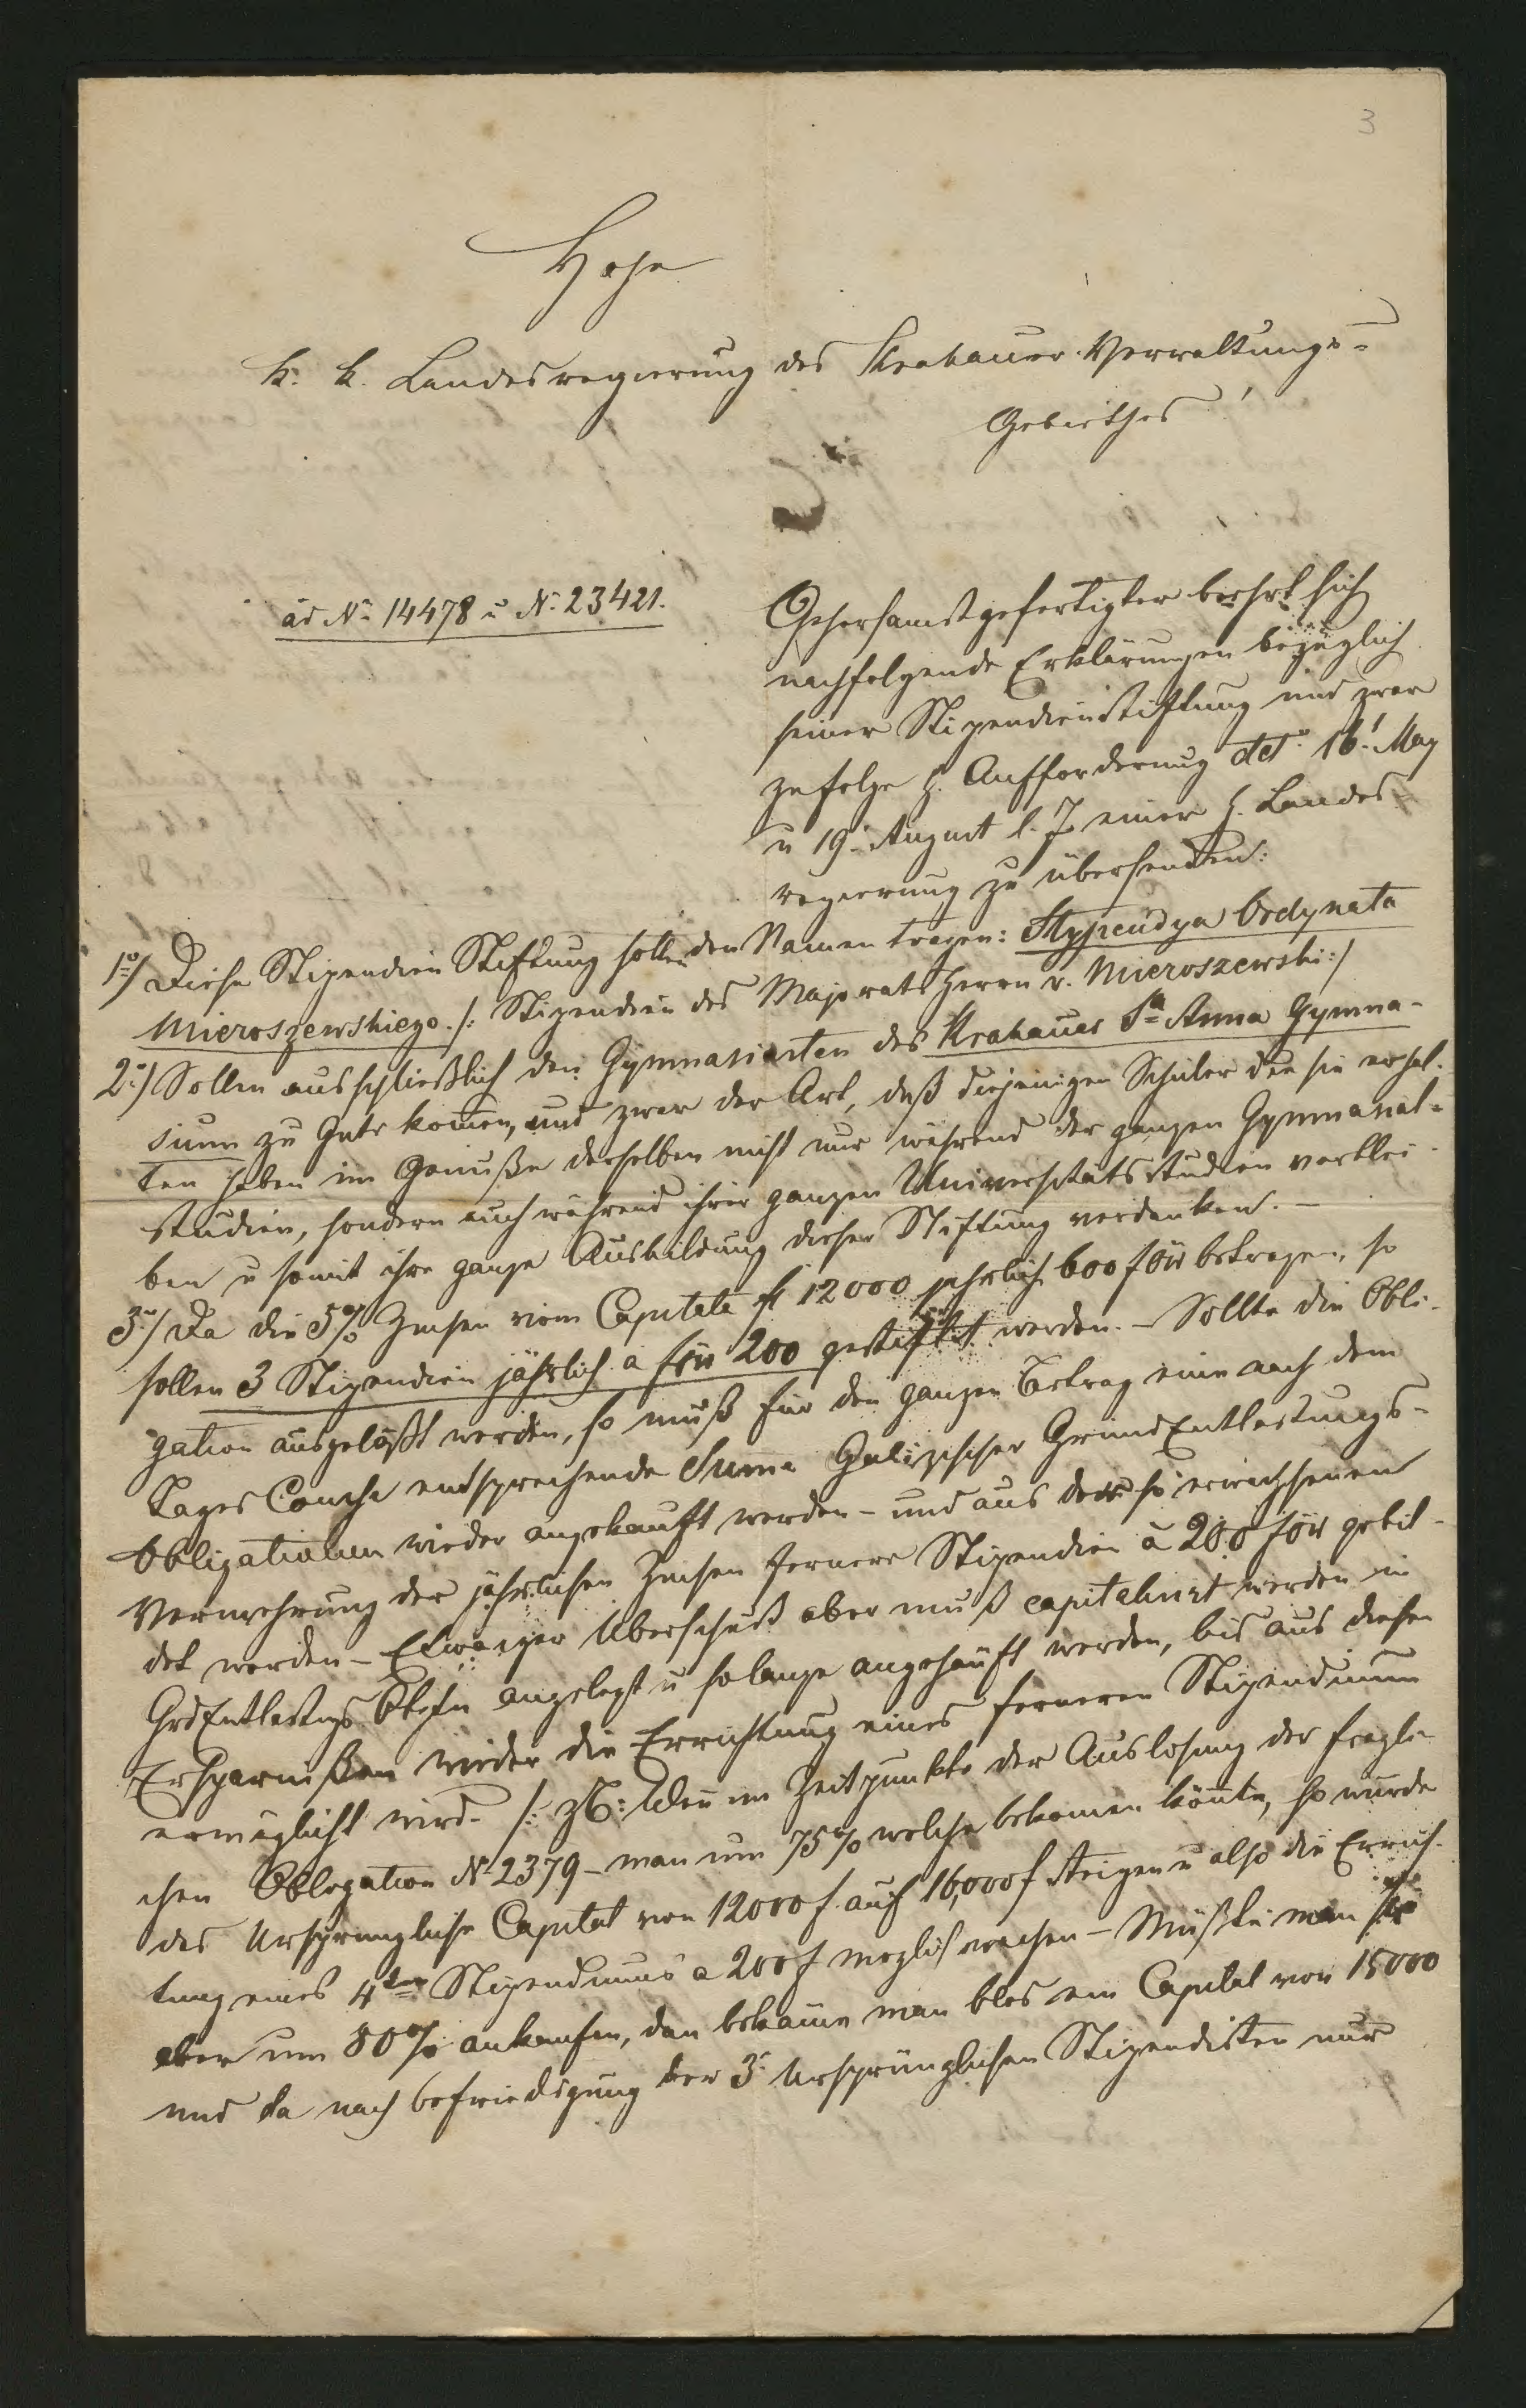 3
Hohe
k. k. Landesregierung des Krakauer Verwaltungs-
Gebiethes!
ad No 14478 u No 23421.
Gehorsamst gefertigter beehrt sich
nachfolgende Erklärungen bezüglich
seiner Stipendienstiftung und zwar
zufolge h. Aufforderung dto 16t May
u 19. August l. J. einer h. Landes-
regierung zu übersenden:
1o/ Diese Stipendien Stiftung solle den Namen tragen: Stypendya Ordynata
Mieroszewskiego. /: Stipendien des Majorats Herrn v. Mieroszewski :/
2o/ Sollen ausschließlich den Gymnasiasten des Krakauer Sta Anna Gymna-
sium zu Gute kommen, und zwar der Art, daß diejenigen Schüler die sie erhal-
ten haben im Genuße derselben nicht nur während der ganzen Gymnasial-
studien, sondern auch während ihrer ganzen Universitätsstudien verblei-
ben u somit ihre ganze Ausbildung dieser Stiftung verdanken. –
3o/ Da die 5% Zinsen vom Capitale f 12000 jährlich 600 f betragen, so
sollen 3 Stipendien jährlich a f 200 gestiftet werden. – Sollte die Obli-
gation ausgelost werden, so muß für den ganzen Betrag eine nach dem
Tages Course entsprechende Summe Galizischer GrundEntlastungs-
Obligationen wieder angekauft werden – und aus der so erwachsenen
Vermehrung der jährlichen Zinsen fernere Stipendien à 200 f gebil-
det werden – Etwaiger Überschuß aber muß capitalisirt werden in
GrdEntlastgs Obligen angelegt u solange angehäuft werden, bis aus diesen
Ersparnißen wieder die Errichtung eines ferneren Stipendium
ermöglicht wird. /: zB: Wenn im Zeitpunkte der Auslosung der fragli-
chen Obligation No 2379 – man um 75% welche bekommen könnte, so würde
das Ursprüngliche Capital von 12000 f. auf 16,000 f steigen u also die Errich-
tung eines 4ten Stipendiums a 200 f möglich machen – Müßte man sie
aber um 80% ankaufen, dan bekäme man blos ein Capital von 15000
und da nach befriedigung der 3 Ursprünglichen Stipendisten nur